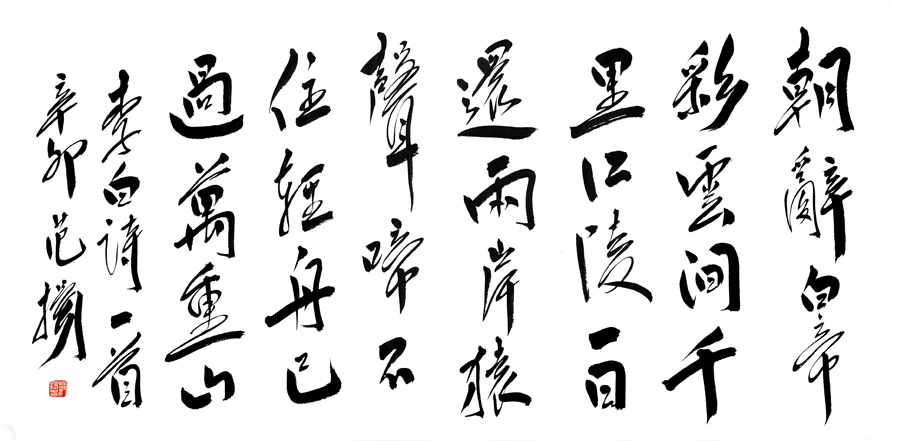 朝辭白帝
彩雲間千
里江陵一日
還兩岸猿
聲啼不
住輕舟已
過萬重山
李白诗一首
辛卯范